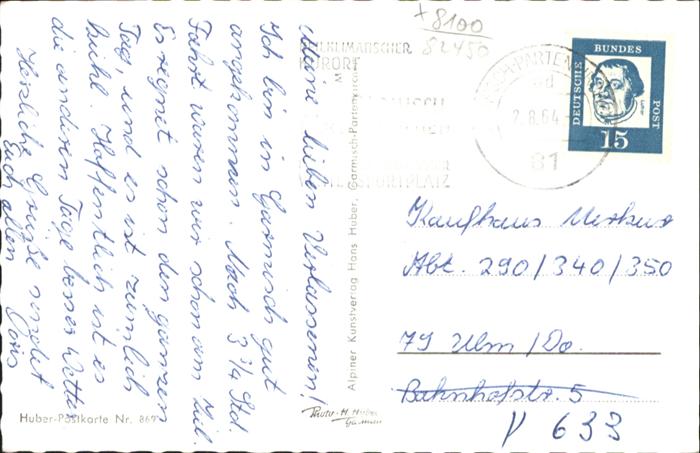 Meine lieben Verlassenen!
Ich bin in Garmisch gut
angekommen. Nach 3 3/4 Std
Fahrt waren wir schon am Ziel.
Es regnet schon den ganzen
Tag, und es ist zimlich
kühl. Hoffentlich ist es
die anderen Tage besser Wetter
Herzliche Grüße sendet
Euch allen
Huber-Postkarte Nr. 867
Alpiner Kunstverlag Hans Huber, Garmisch-Partenkirchen
Photo-H. Huber
Garmisch
+8100
82450
HEILKLIMATISCHER
KURORT
SPORTPLATZ
GARMISCH-PARTEN
d
2.8.64
81
DEUTSCHE
BUNDES
POST
15
Kaufhaus Merkur
Abt. 290/340/350
79 Ulm/Do.
Bahnhofstr. 5
V 633